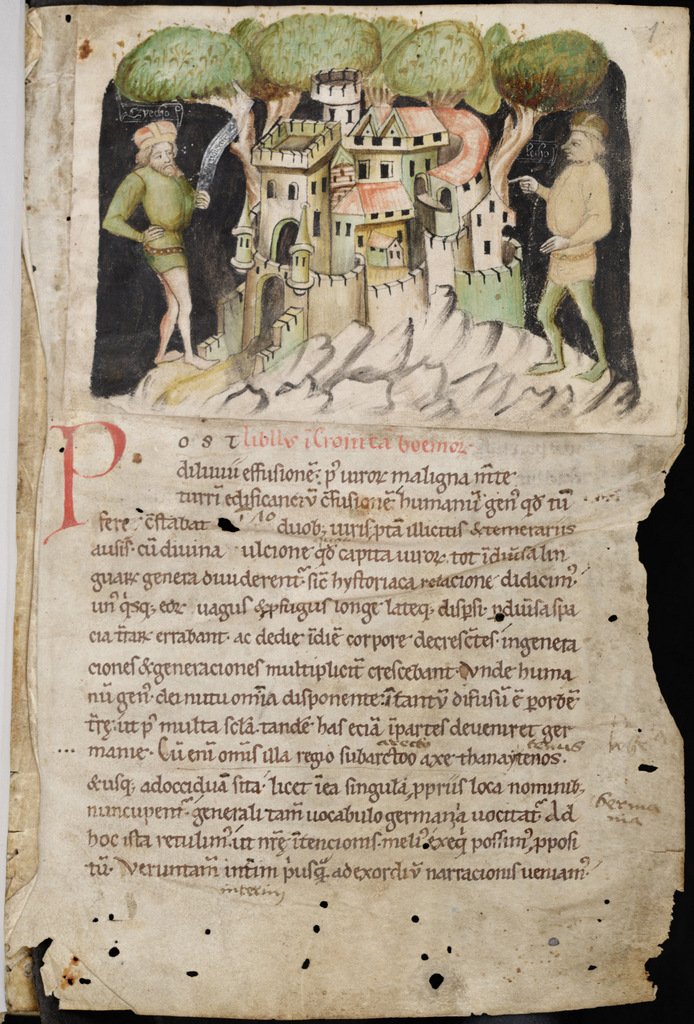 1
Czecho
Lecho
P ost libllꝰ ī Cronicā boemoꝝ
diluuii effusionē; p' uiroꝝ maligna m̄te
turrī edificanciū ꝯfusionē humanū gen' qd̄ tū
fere ꝯstabat duob; uiris ptā illicitis & temerariis
ausis cū diuina ulcione qd̄ capita uiroꝝ tot ī diūsa lin
guaꝝ genera diuiderent᷑ sic̄ hystoriaca relacione didicim'
un' q'sq; eoꝝ uagus & ꝓfugus longe lateq; disp̄si p diūsa spa
cia tr̄aꝝ errabant ac de die ī diē corpore decresc̄tes in genera
ciones & generaciones multiplicit᷑ crescebant. Vnde huma
nū gen' dei nutu om̄ia disponente ī tantū difusū ē ꝑ orbē
tr̄e ut p' multa sc̄la tandē has eciā ī partes deueniret ger
manie. Cū eni om̄is illa regio sub arctoo axe thanaytenos
arecto
tenus
& usq; ad occiduā sita licet ī ea singula ꝓpriis loca nominib;
nuncupent᷑ generali tam̄ uocabulo germania uocitat᷑ Ad
hoc ista retulim' ut nr̄e ītencionis meli' exeq' possim' ꝓposi
tū. Verumtam̄ int̄im p'usq̄ ad exordiū narracionis ueniam'
interim
germa
nia